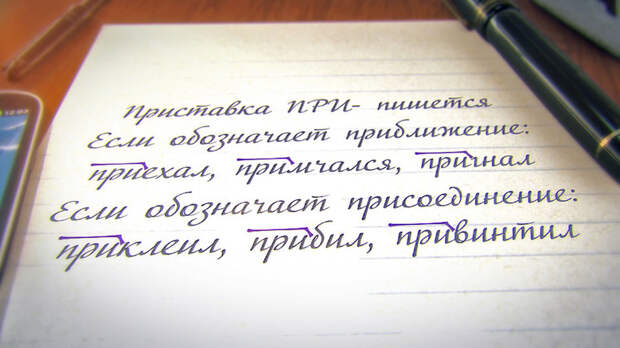 Приставка ПРИ- пишется
Если обозначает приближение:
приехал, примчался, пригнал
Если обозначает присоединение:
приклеил, прибил, привинтил